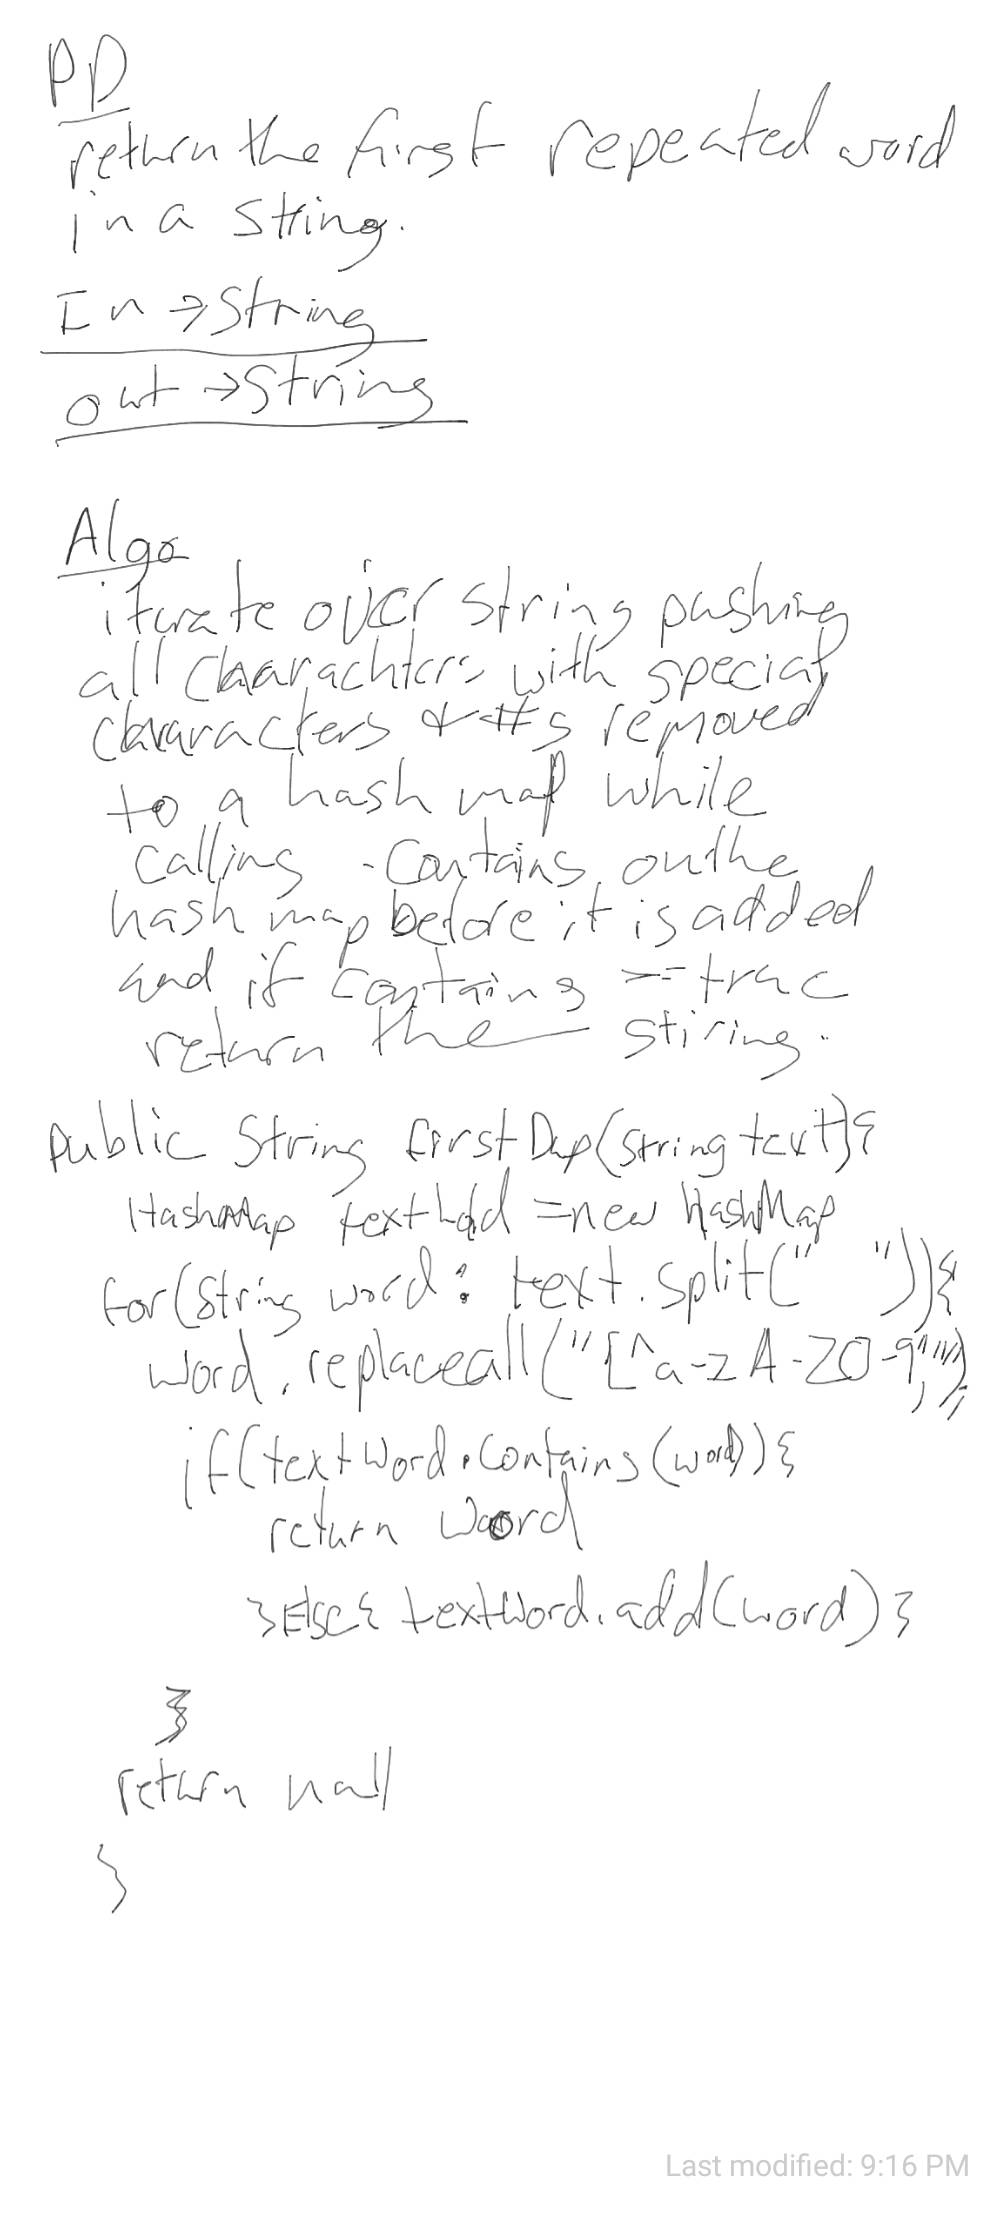 PD
return the first repeated word
in a string.
In → String
out → String
Algo
iterate over string pushing
all charachters with special
characters & #s removed
to a hash map while
calling .contains on the
hash map before it is added
and if contains == true
return the stiring.
public String firstDup(String text){
HashMap text = new HashMap
for(String word : text.split(" ")){
word.replaceall("[^a-zA-Z0-9","");
if(textWord.contains(word)){
return word
}Else{ textWord.add(word) }
}
return null
}
Last modified: 9:16 PM